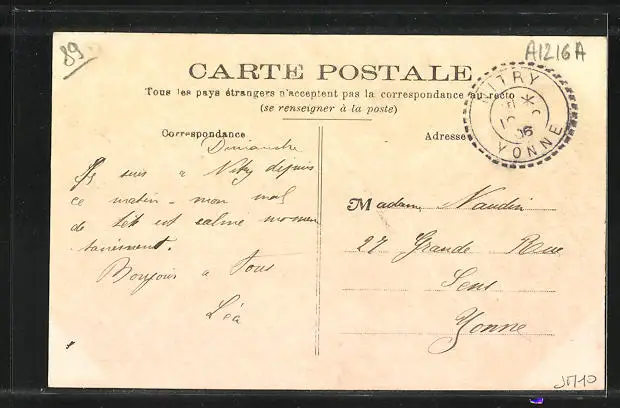 89
A1216A
CARTE POSTALE
Tous les pays étrangers n'acceptent pas la correspondance au recto
(se renseigner à la poste)
Correspondance
Dimanche
Je suis a Vitry depuis
ce matin - mon mal
de tête est calmé momen
tanément.
Bonjour a tous
Léa
Adresse
VITRY
06
YONNE
Madame Naudin
27 Grande Rue
Sens
Yonne